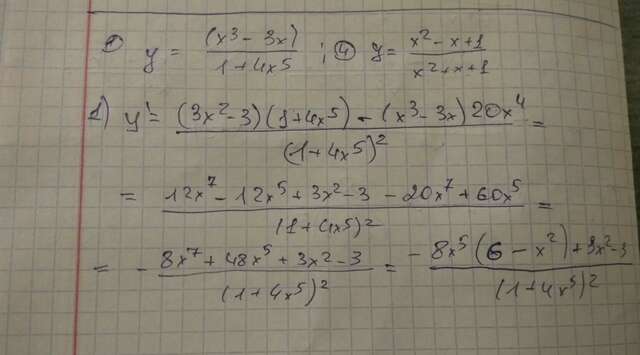 ① y = (x³ - 3x) / 1 + 4x⁵ ; ④ y = x² - x + 1 / x² + x + 1
1) y' = (3x² - 3)(1 + 4x⁵) - (x³ - 3x) 20x⁴ / (1 + 4x⁵)² =
= 12x⁷ - 12x⁵ + 3x² - 3 - 20x⁷ + 60x⁵ / (1 + 4x⁵)² =
= - 8x⁷ + 48x⁵ + 3x² - 3 / (1 + 4x⁵)² = - 8x⁵(6 - x²) + 3x² - 3 / (1 + 4x⁵)²